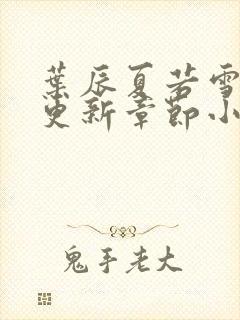 葉辰夏若雪
更新章節小
鬼手老大